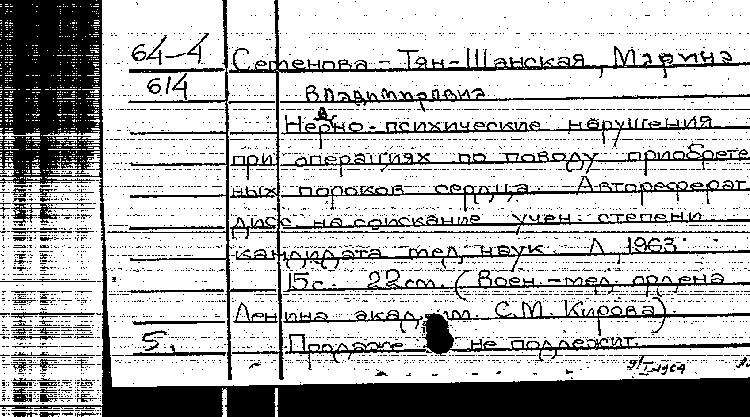 64-4 Семенова-Тян-Шанская, Марина
614 Владимировна
Нервно-психические нарушения
при операциях по поводу приобретен
ных пороков сердца. Автореферат
дисс. на соискание учен. степени
кандидата мед. наук. Л., 1963.
15с. 22см. (Воен.-мед. ордена
Ленина акад. им. С.М. Кирова).
5. Продаже не подлежит.